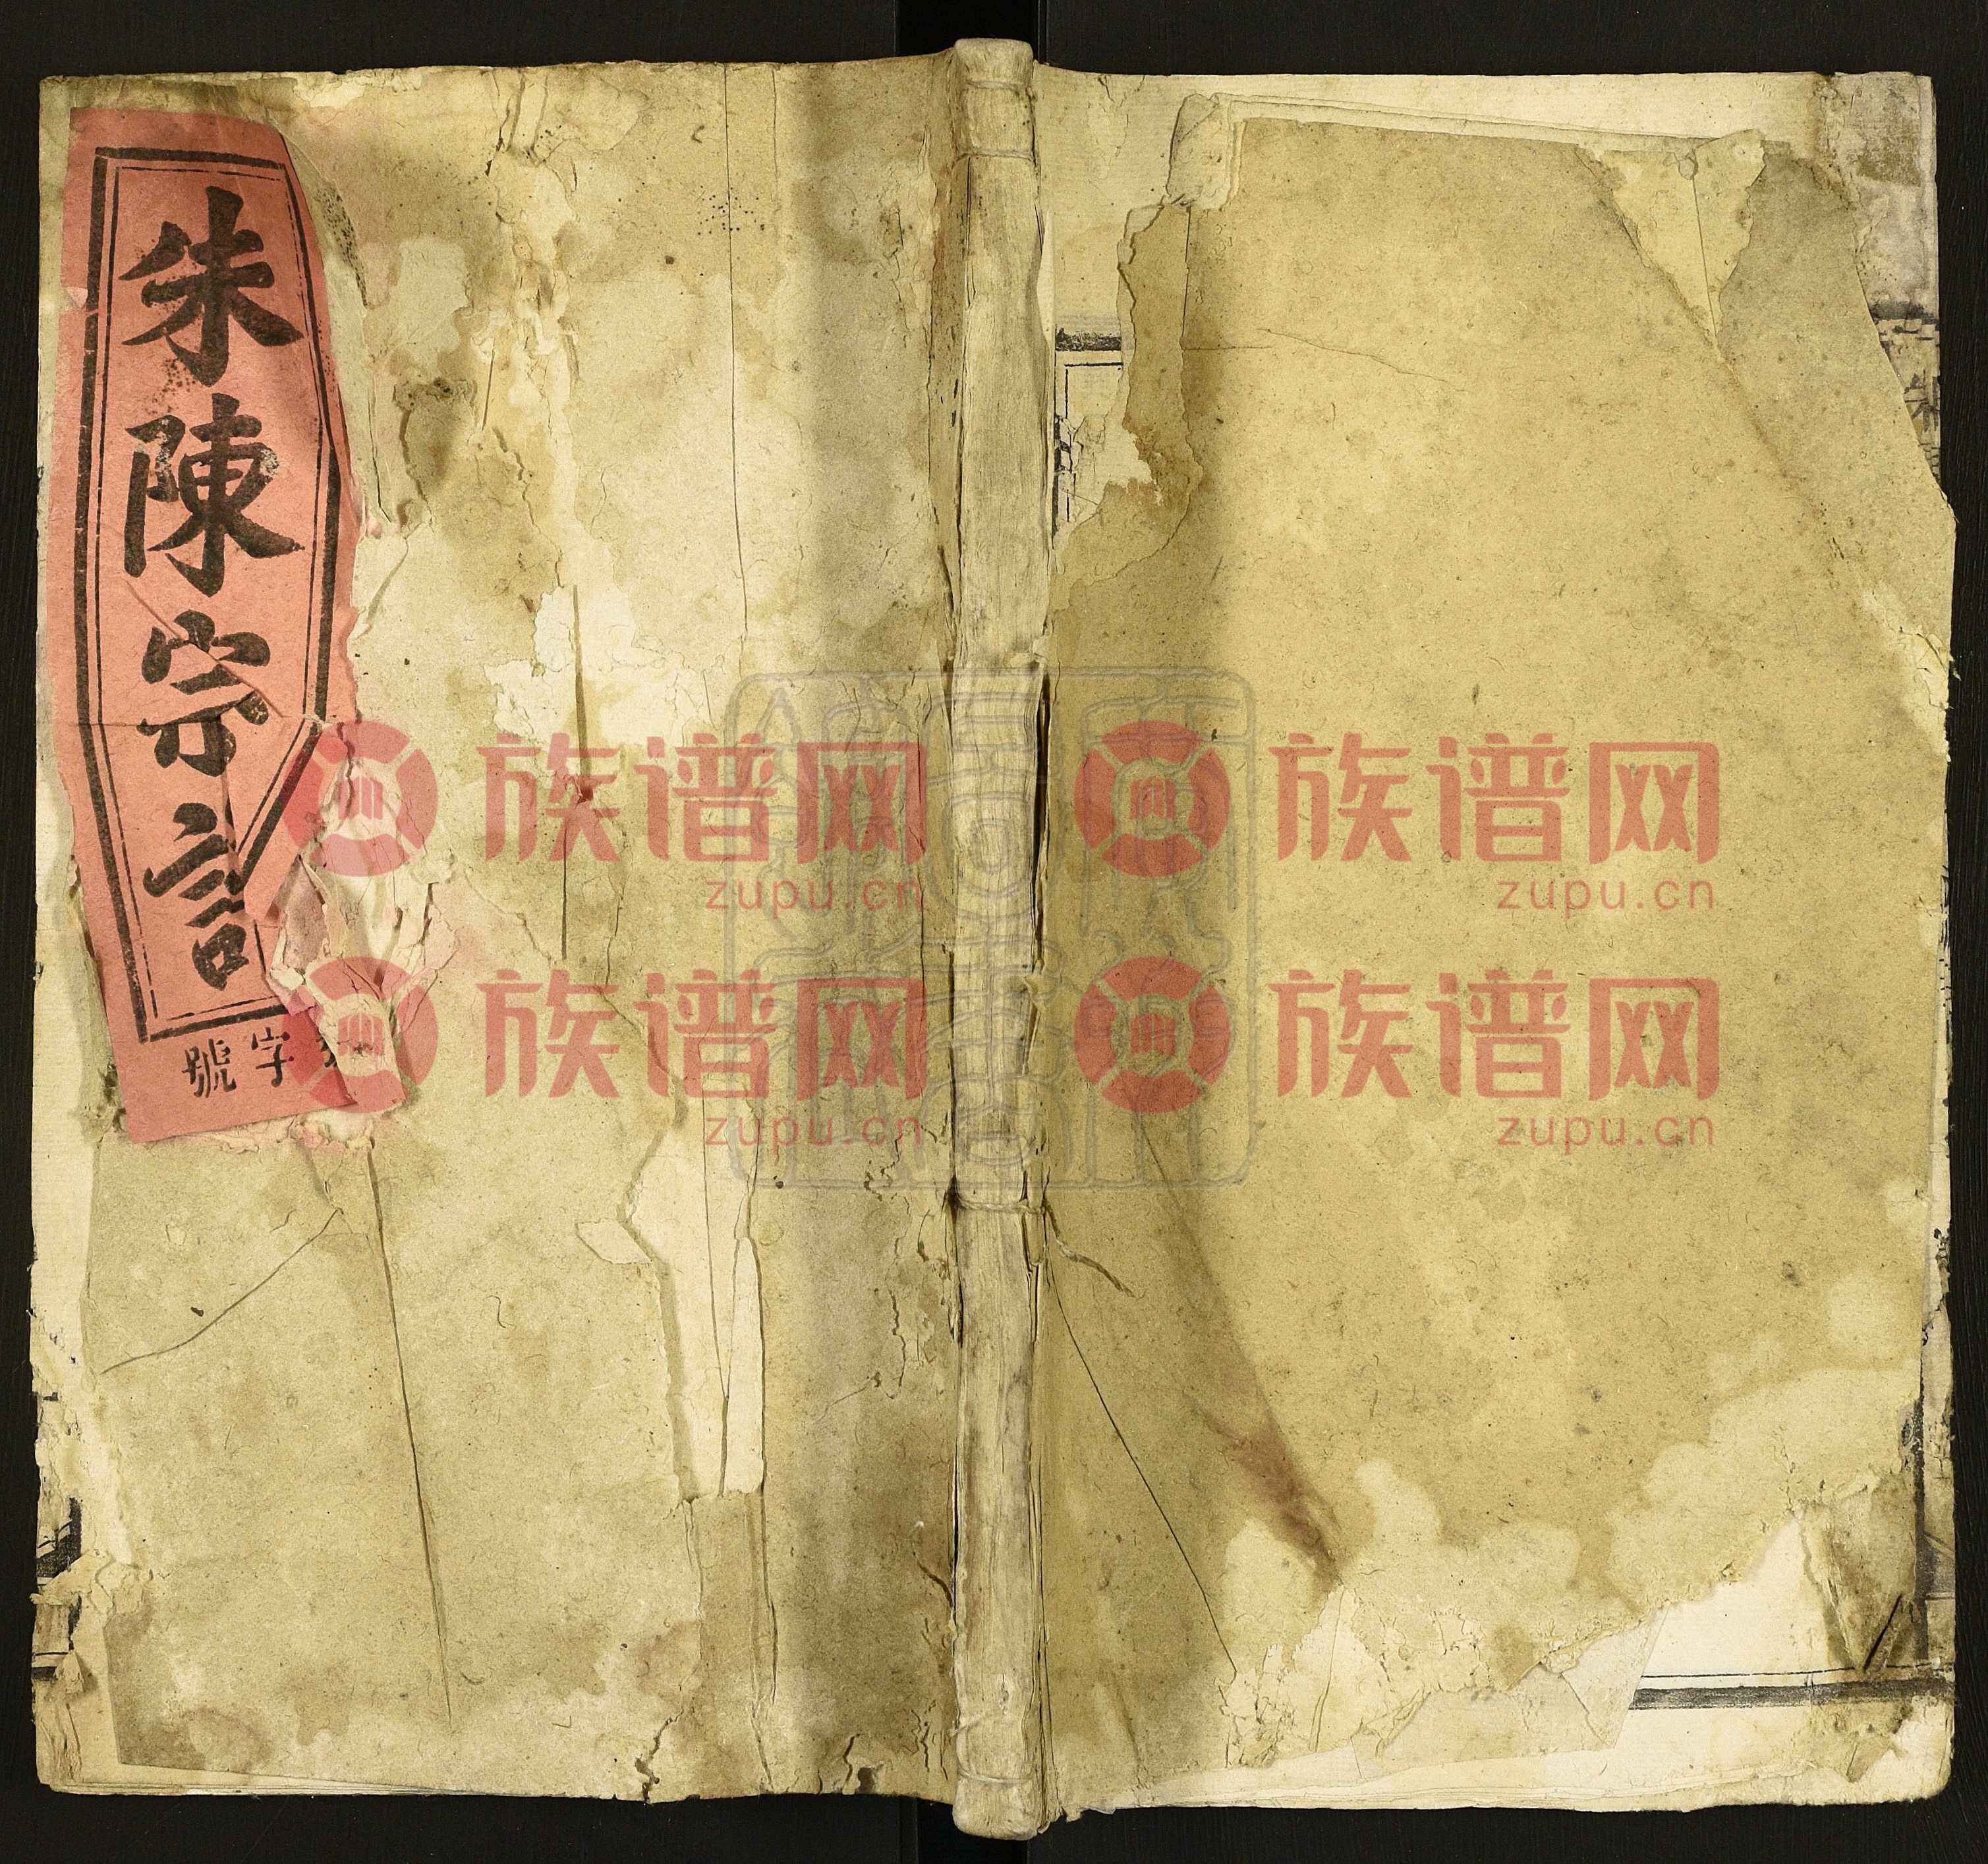 朱陳宗言
字號
族谱网 族谱网
zupu.cn zupu.cn
族谱网 族谱网
zupu.cn zupu.cn